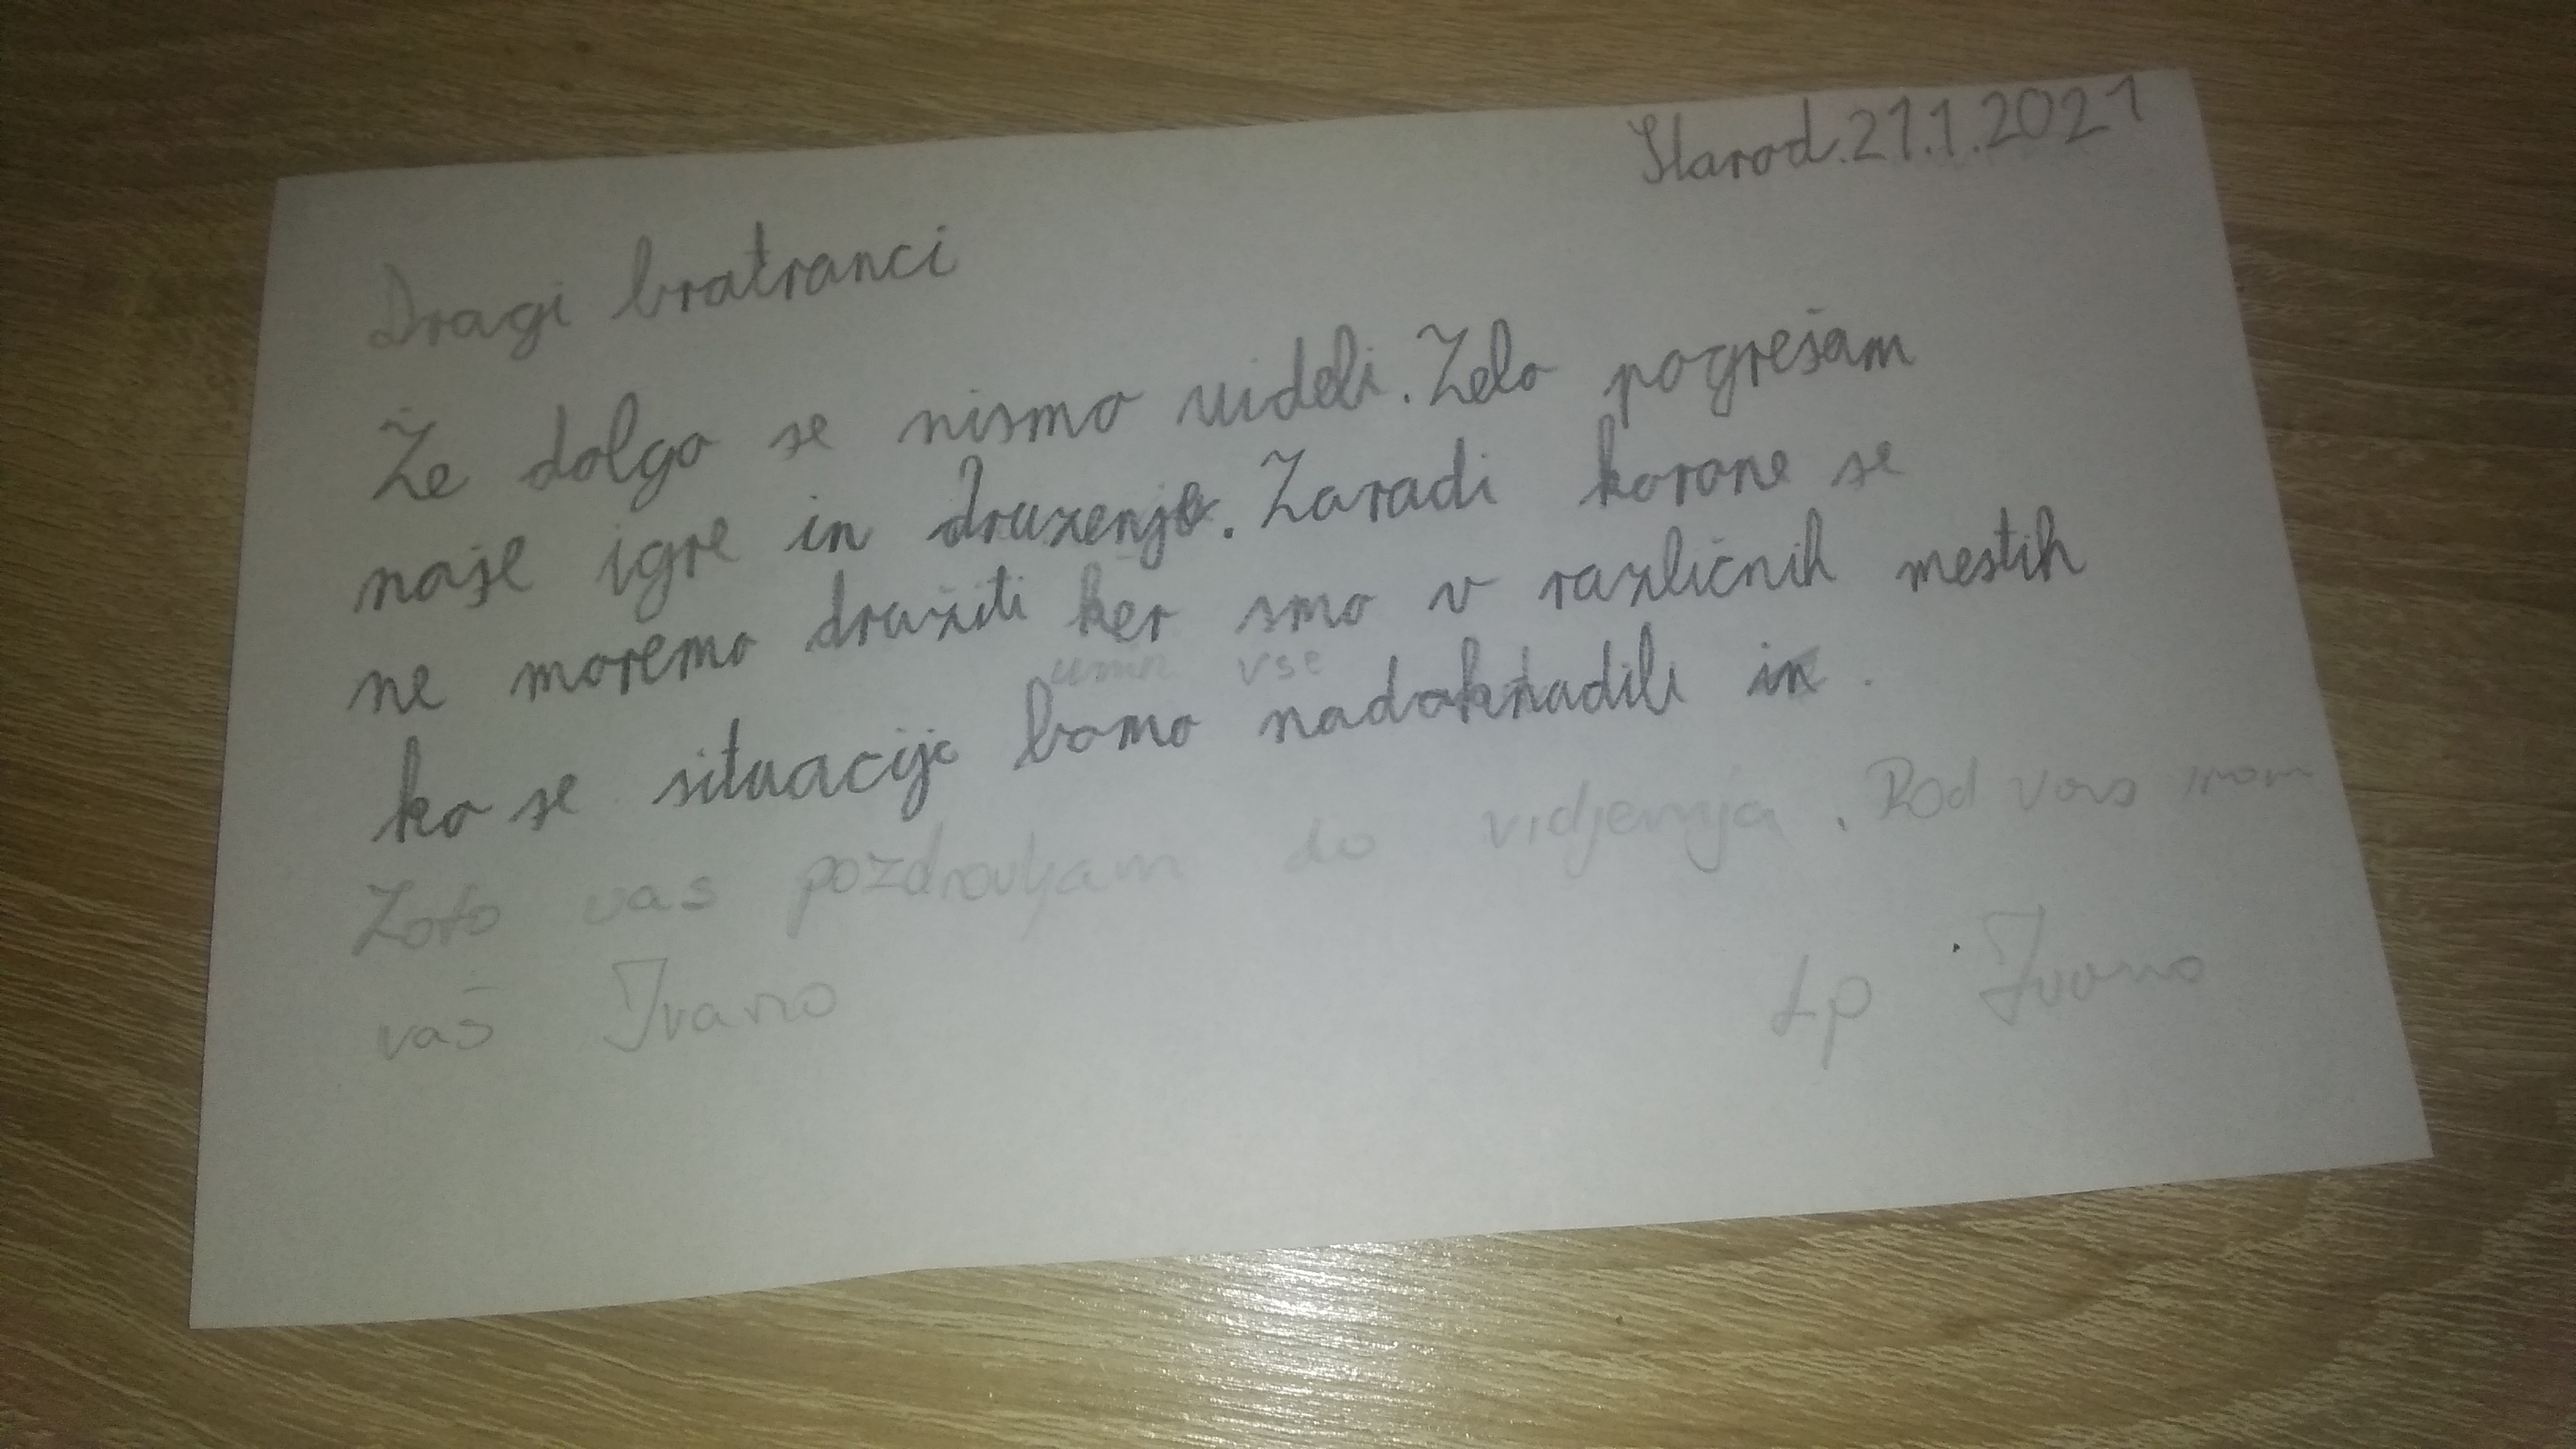 Starod.21.1.2021
Dragi bratranci
Že dolgo se nismo videli. Zelo pogrešam
naše igre in druxenje. Zaradi korone se
ne moremo družiti ker smo v različnih mestih
vse
ko se situacije bomo nadoknadili in.
Zato vas pozdravljam do vidjenja. Rad vas imam
vaš Ivano
Lp Ivano